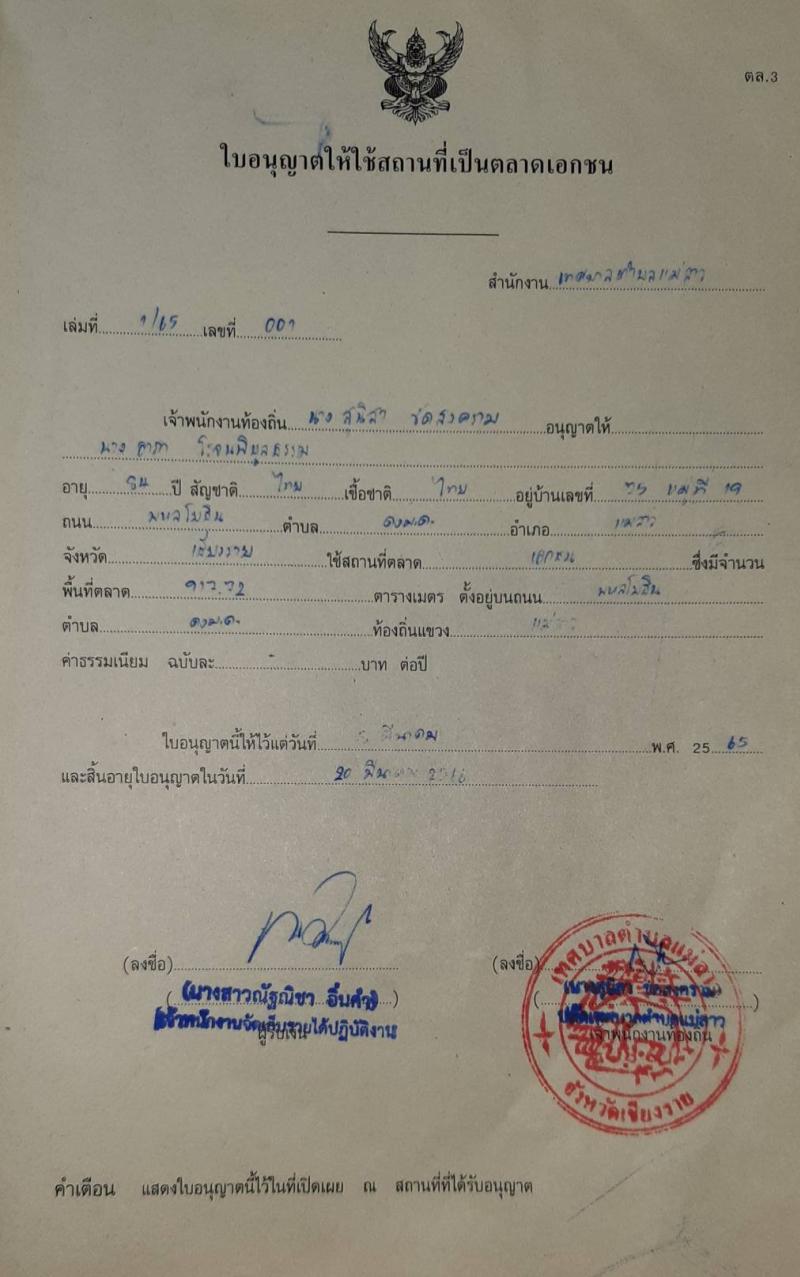 ตล.3
ใบอนุญาตให้ใช้สถานที่เป็นตลาดเอกชน
สำนักงาน เทศบาลตำบลแม่ลาว
เล่มที่ 1/65 เลขที่ 001
เจ้าพนักงานท้องถิ่น นาง สุนิสา ขัดสงคราม อนุญาตให้
นาง
อายุ ปี สัญชาติ ไทย เชื้อชาติ ไทย อยู่บ้านเลขที่ หมู่ที่ 19
ถนน พหลโยธิน ตำบล ดงมะดะ อำเภอ แม่ลาว
จังหวัด เชียงราย ใช้สถานที่ตลาด เอกชน ซึ่งมีจำนวน
พื้นที่ตลาด ตารางเมตร ตั้งอยู่บนถนน พหลโยธิน
ตำบล ดงมะดะ ท้องถิ่นแขวง แม่ลาว
ค่าธรรมเนียม ฉบับละ - บาท ต่อปี
ใบอนุญาตนี้ให้ไว้แต่วันที่ มีนาคม พ.ศ. 2565
และสิ้นอายุใบอนุญาตในวันที่ 20 มีนาคม
(ลงชื่อ) (ลงชื่อ)
(นางสาวณัฐณิชา อิ่นคำ)
เจ้าพนักงานจัดเก็บรายได้ปฏิบัติงาน ปลัดเทศบาลตำบลแม่ลาว
ผู้รับเงิน เจ้าพนักงานท้องถิ่น
เทศบาลตำบลแม่ลาว
จังหวัดเชียงราย
คำเตือน แสดงใบอนุญาตนี้ไว้ในที่เปิดเผย ณ สถานที่ที่ได้รับอนุญาต